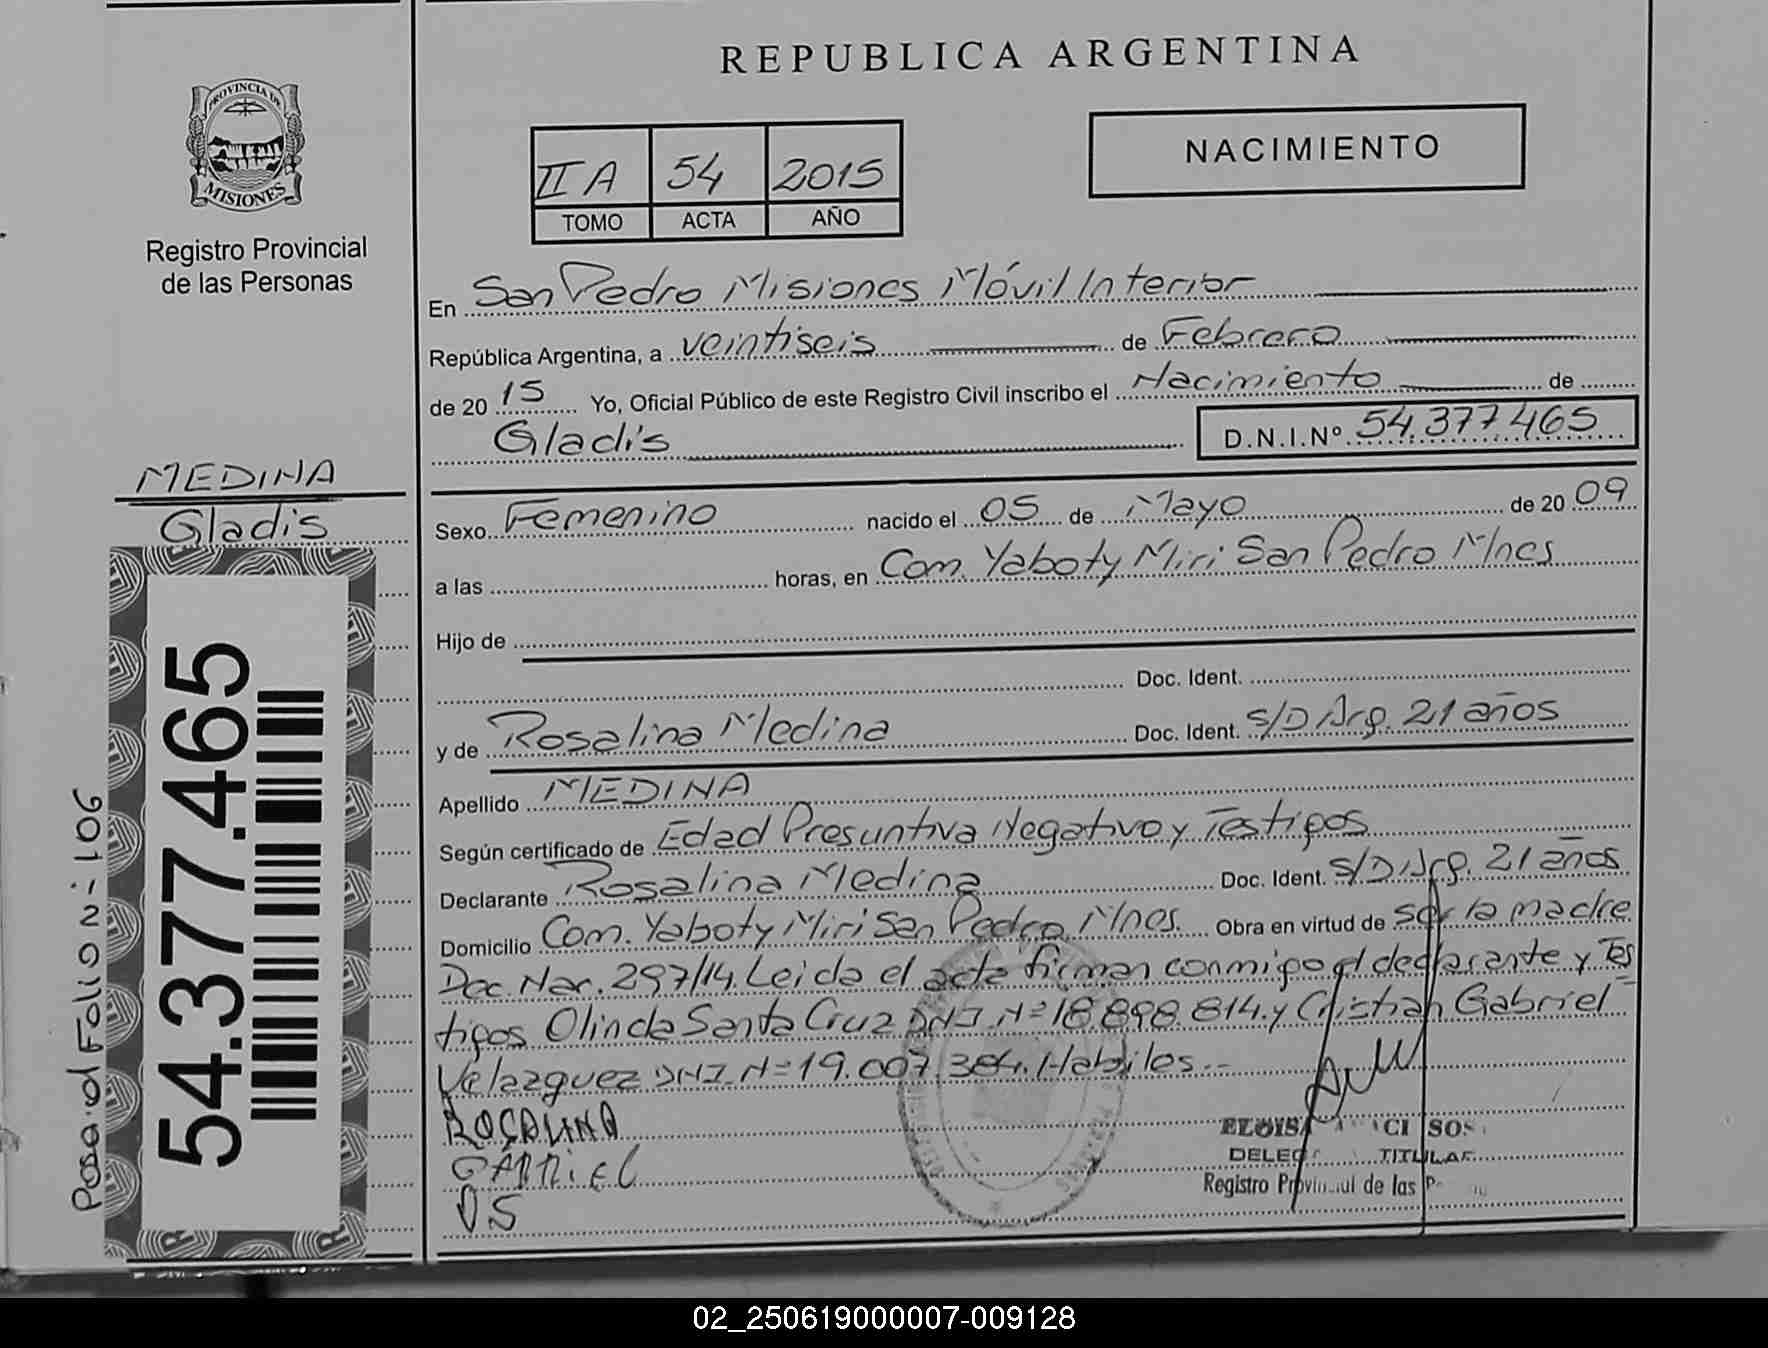 REPUBLICA ARGENTINA
PROVINCIA DE
MISIONES
Registro Provincial
de las Personas
II A 54 2015
TOMO ACTA AÑO
NACIMIENTO
En San Pedro Misiones Móvil Interior
República Argentina, a veintiseis de Febrero
de 20 15 Yo, Oficial Público de este Registro Civil inscribo el Nacimiento de
Gladis D.N.I.Nº 54.377.465
MEDINA
Gladis
Sexo Femenino nacido el 05 de Mayo de 20 09
a las horas, en Com. Yaboty Miri San Pedro Mnes
Hijo de
Doc. Ident.
y de Rosalina Medina Doc. Ident. S/D Arg. 21 años
Apellido MEDINA
Según certificado de Edad Presuntiva Negativo y Testigos
Declarante Rosalina Medina Doc. Ident. S/D Arg. 21 años
Domicilio Com. Yaboty Miri San Pedro Mnes. Obra en virtud de ser la madre
Doc. Nac. 297/14. Leida el acta firman conmigo el declarante y Tes
tigos Olinda Santa Cruz DNI Nº 18.898.814. y Cristian Gabriel
Velazquez DNI Nº 19.007.384. Habiles.-
ROSALINA
GABRIEL
OS
DELEG TITULAR
Registro Provincial de las
54.377.465
Pasa al Folio Nº: 106
02_250619000007-009128